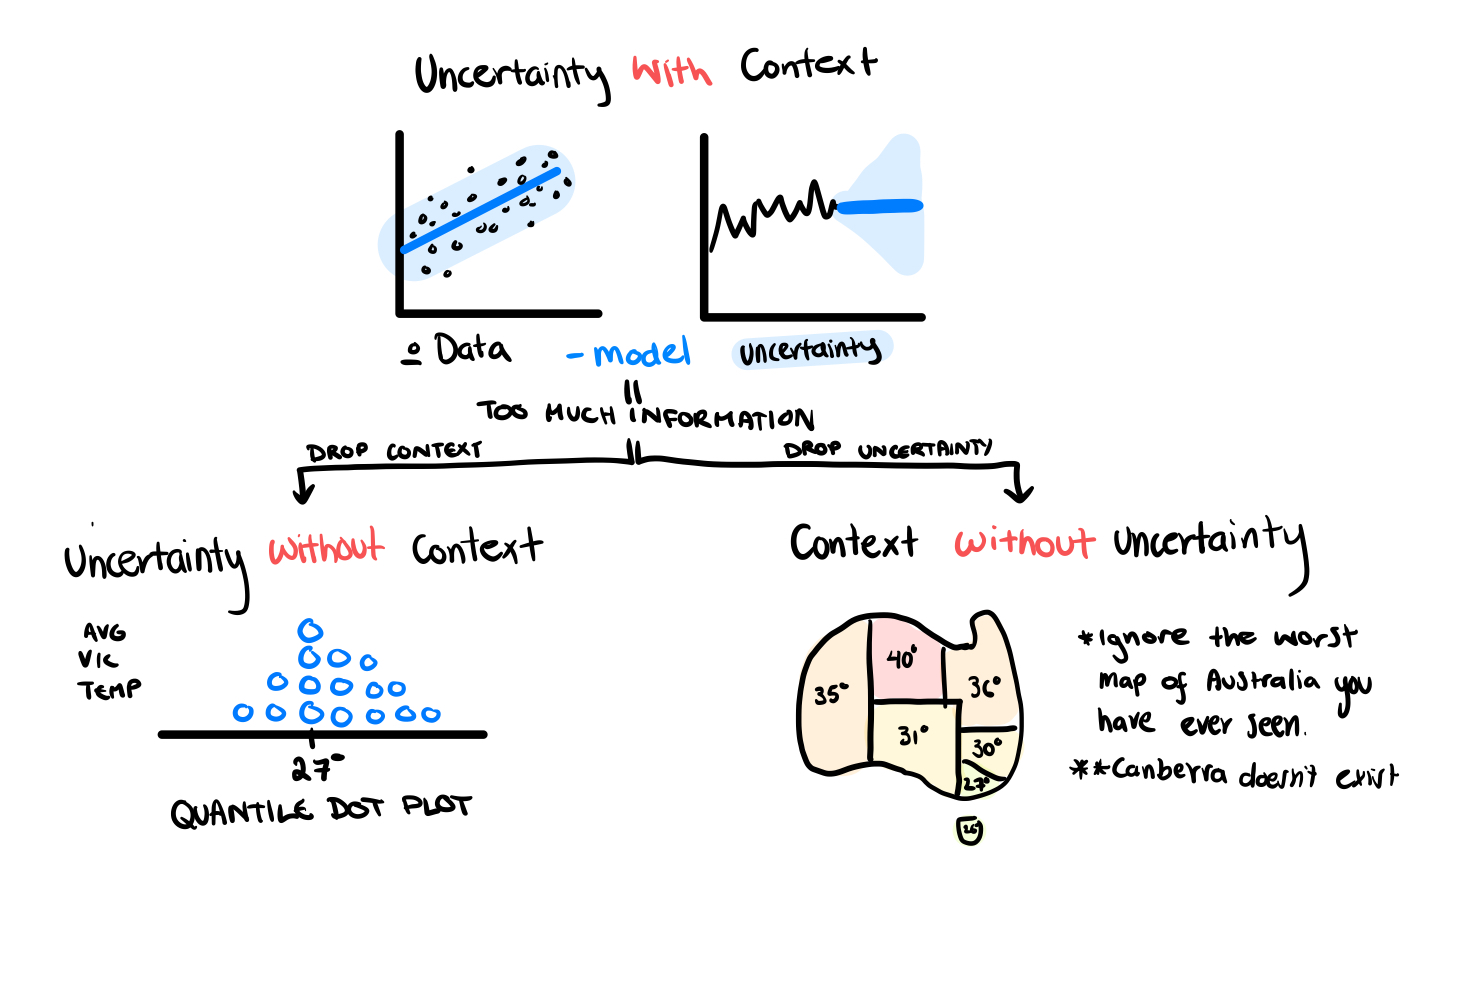 Uncertainty with Context
Data
- model
uncertainty
TOO MUCH INFORMATION
DROP CONTEXT
DROP UNCERTAINTY
Uncertainty without Context
AVG
VIC
TEMP
27°
QUANTILE DOT PLOT
Context without Uncertainty
35°
40°
36°
31°
30°
27°
26°
*Ignore the worst
map of Australia you
have ever seen.
**Canberra doesn't exist